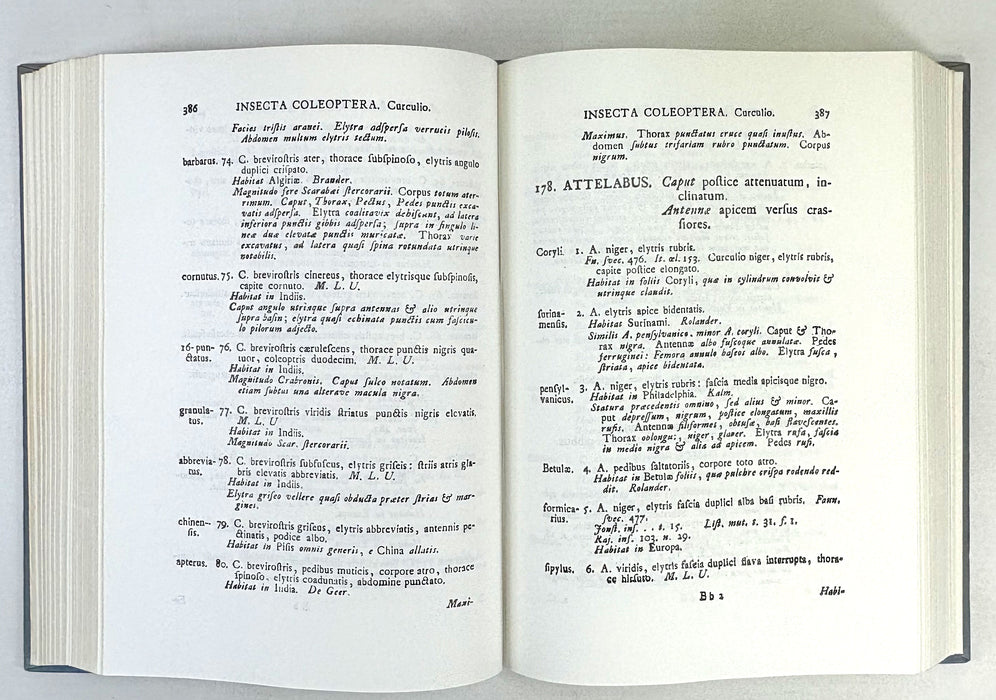 386 INSECTA COLEOPTERA. Curculio.
Facies tristis aranei. Elytra adspersa verrucis pilosis.
Abdomen multum elytris tectum.
barbarus. 74. C. brevirostris ater, thorace subspinoso, elytris angulo
duplici crispato.
Habitat Algiriæ. Brander.
Magnitudo fere Scarabæi stercorarii. Corpus totum ater-
rimum. Caput, Thorax, Pectus, Pedes punctis exca-
vatis adspersa. Elytra coalita vix dehiscunt, ad latera
inferiora punctis gibbis adspersa; supra in singulo li-
neæ duæ elevatæ punctis muricatæ. Thorax varie
excavatus, ad latera quasi spina rotundata utrinque
notabilis.
cornutus. 75. C. brevirostris cinereus, thorace elytrisque subspinosis,
capite cornuto. M. L. U.
Habitat in Indiis.
Caput angulo utrinque supra antennas & alio utrinque
supra basin; elytra quasi echinata punctis cum fascicu-
lo pilorum adjecto.
16-pun- 76. C. brevirostris cærulescens, thorace punctis nigris qua-
ctatus. tuor, coleoptris duodecim. M. L. U.
Habitat in Indiis.
Magnitudo Crabronis. Caput sulco notatum. Abdomen
etiam subtus una alterave macula nigra.
granula- 77. C. brevirostris viridis striatus punctis nigris elevatis.
tus. M. L. U
Habitat in Indiis.
Magnitudo Scar. stercorarii.
abbrevia- 78. C. brevirostris subfuscus, elytris griseis: striis atris gla-
tus. bris elevatis abbreviatis. M. L. U.
Habitat in Indiis.
Elytra griseo vellere quasi obducta præter strias & mar-
gines.
chinen- 79. C. brevirostris griseus, elytris abbreviatis, antennis pe-
sis. ctinatis, podice albo.
Habitat in Pisis omnis generis, e China allatis.
apterus. 80. C. brevirostris, pedibus muticis, corpore atro, thorace
spinoso, elytris coadunatis, abdomine punctato.
Habitat in India. De Geer.
Maxi-
INSECTA COLEOPTERA. Curculio. 387
Maximus. Thorax punctatus cruce quasi inustus. Ab-
domen subtus trifariam rubro punctatum. Corpus
nigrum.
178. ATTELABUS. Caput postice attenuatum, in-
clinatum.
Antennæ apicem versus cras-
siores.
Coryli 1. A. niger, elytris rubris.
Fn. svec. 476. It. œl. 153. Curculio niger, elytris rubris,
capite postice elongato.
Habitat in foliis Coryli, quæ in cylindrum convolvit &
utrinque claudit.
surina- 2. A. elytris apice bidentatis.
mensis. Habitat Surinami. Rolander.
Similis A. pensylvanico, minor A. coryli. Caput & Tho-
rax nigra. Antennæ albo fuscoque annulatæ. Pedes
ferruginei: Femora annulo baseos albo. Elytra fusca,
striata, apice bidentata.
pensyl- 3. A. niger, elytris rubris: fascia media apicisque nigro.
vanicus. Habitat in Philadelphia. Kalm.
Statura præcedentis omnino, sed alius & minor. Ca-
put depressum, nigrum, postice elongatum, maxillis
rufis. Antennæ filiformes, obtusæ, basi flavescentes.
Thorax oblongus, niger, glaber. Elytra rufa, fascia
in medio nigra & alia ad apicem. Pedes rufi.
Betulæ. 4. A. pedibus saltatoriis, corpore toto atro.
Habitat in Betulæ foliis, quæ pulchre crispa rodendo red-
dit. Rolander.
formica- 5. A. niger, elytris fascia duplici alba basi rubris. Faun.
rius. svec. 477.
Jonst. ins. . . t. 15. List. mut. t. 31. f. 1.
Raj. ins. 103. n. 29.
Habitat in Europa.
sipylus. 6. A. viridis, elytris fascia duplici flava interrupta, thora-
ce hirsuto. M. L. U.
Bb 2 Habi-